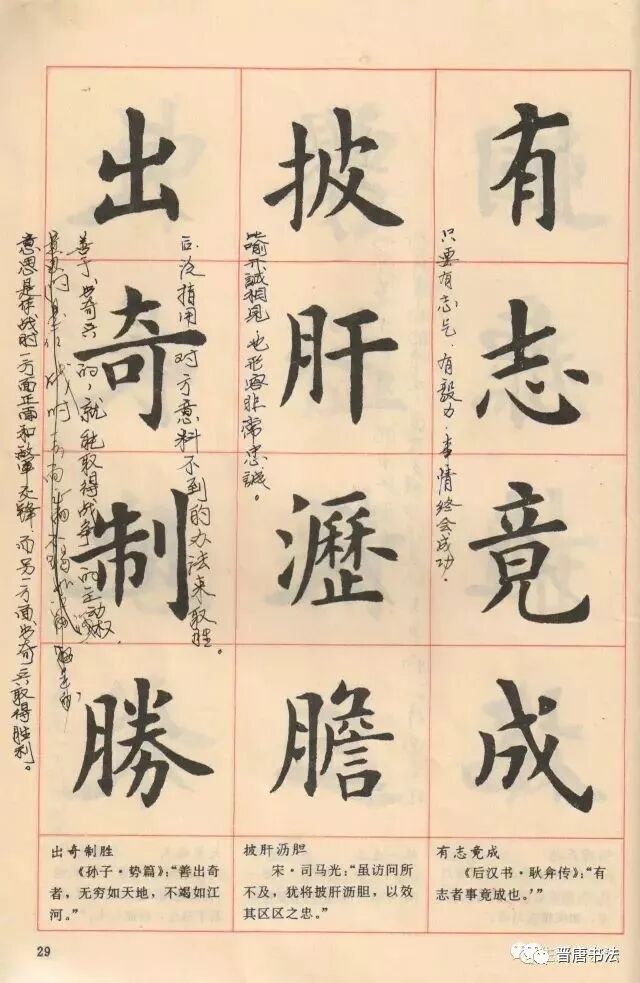 有志竟成
只要有志气.有毅力.事情终会成功.
披肝瀝膽
比喻开誠相見,也形容非常忠誠。
出奇制勝
后泛指用对方意料不到的办法来取胜。
善于出奇兵的,就能取得战争的主动权.
意思是作战时一方面正面和敵軍交锋 而另一方面出奇兵取得胜利。
有志竟成
《后汉书·耿弇传》:“有
志者事竟成也。’”
披肝沥胆
宋·司马光:“虽访问所
不及,犹将披肝沥胆,以效
其区区之忠。”
出奇制胜
《孙子·势篇》:“善出奇
者,无穷如天地,不竭如江
河。”
29
晋唐书法